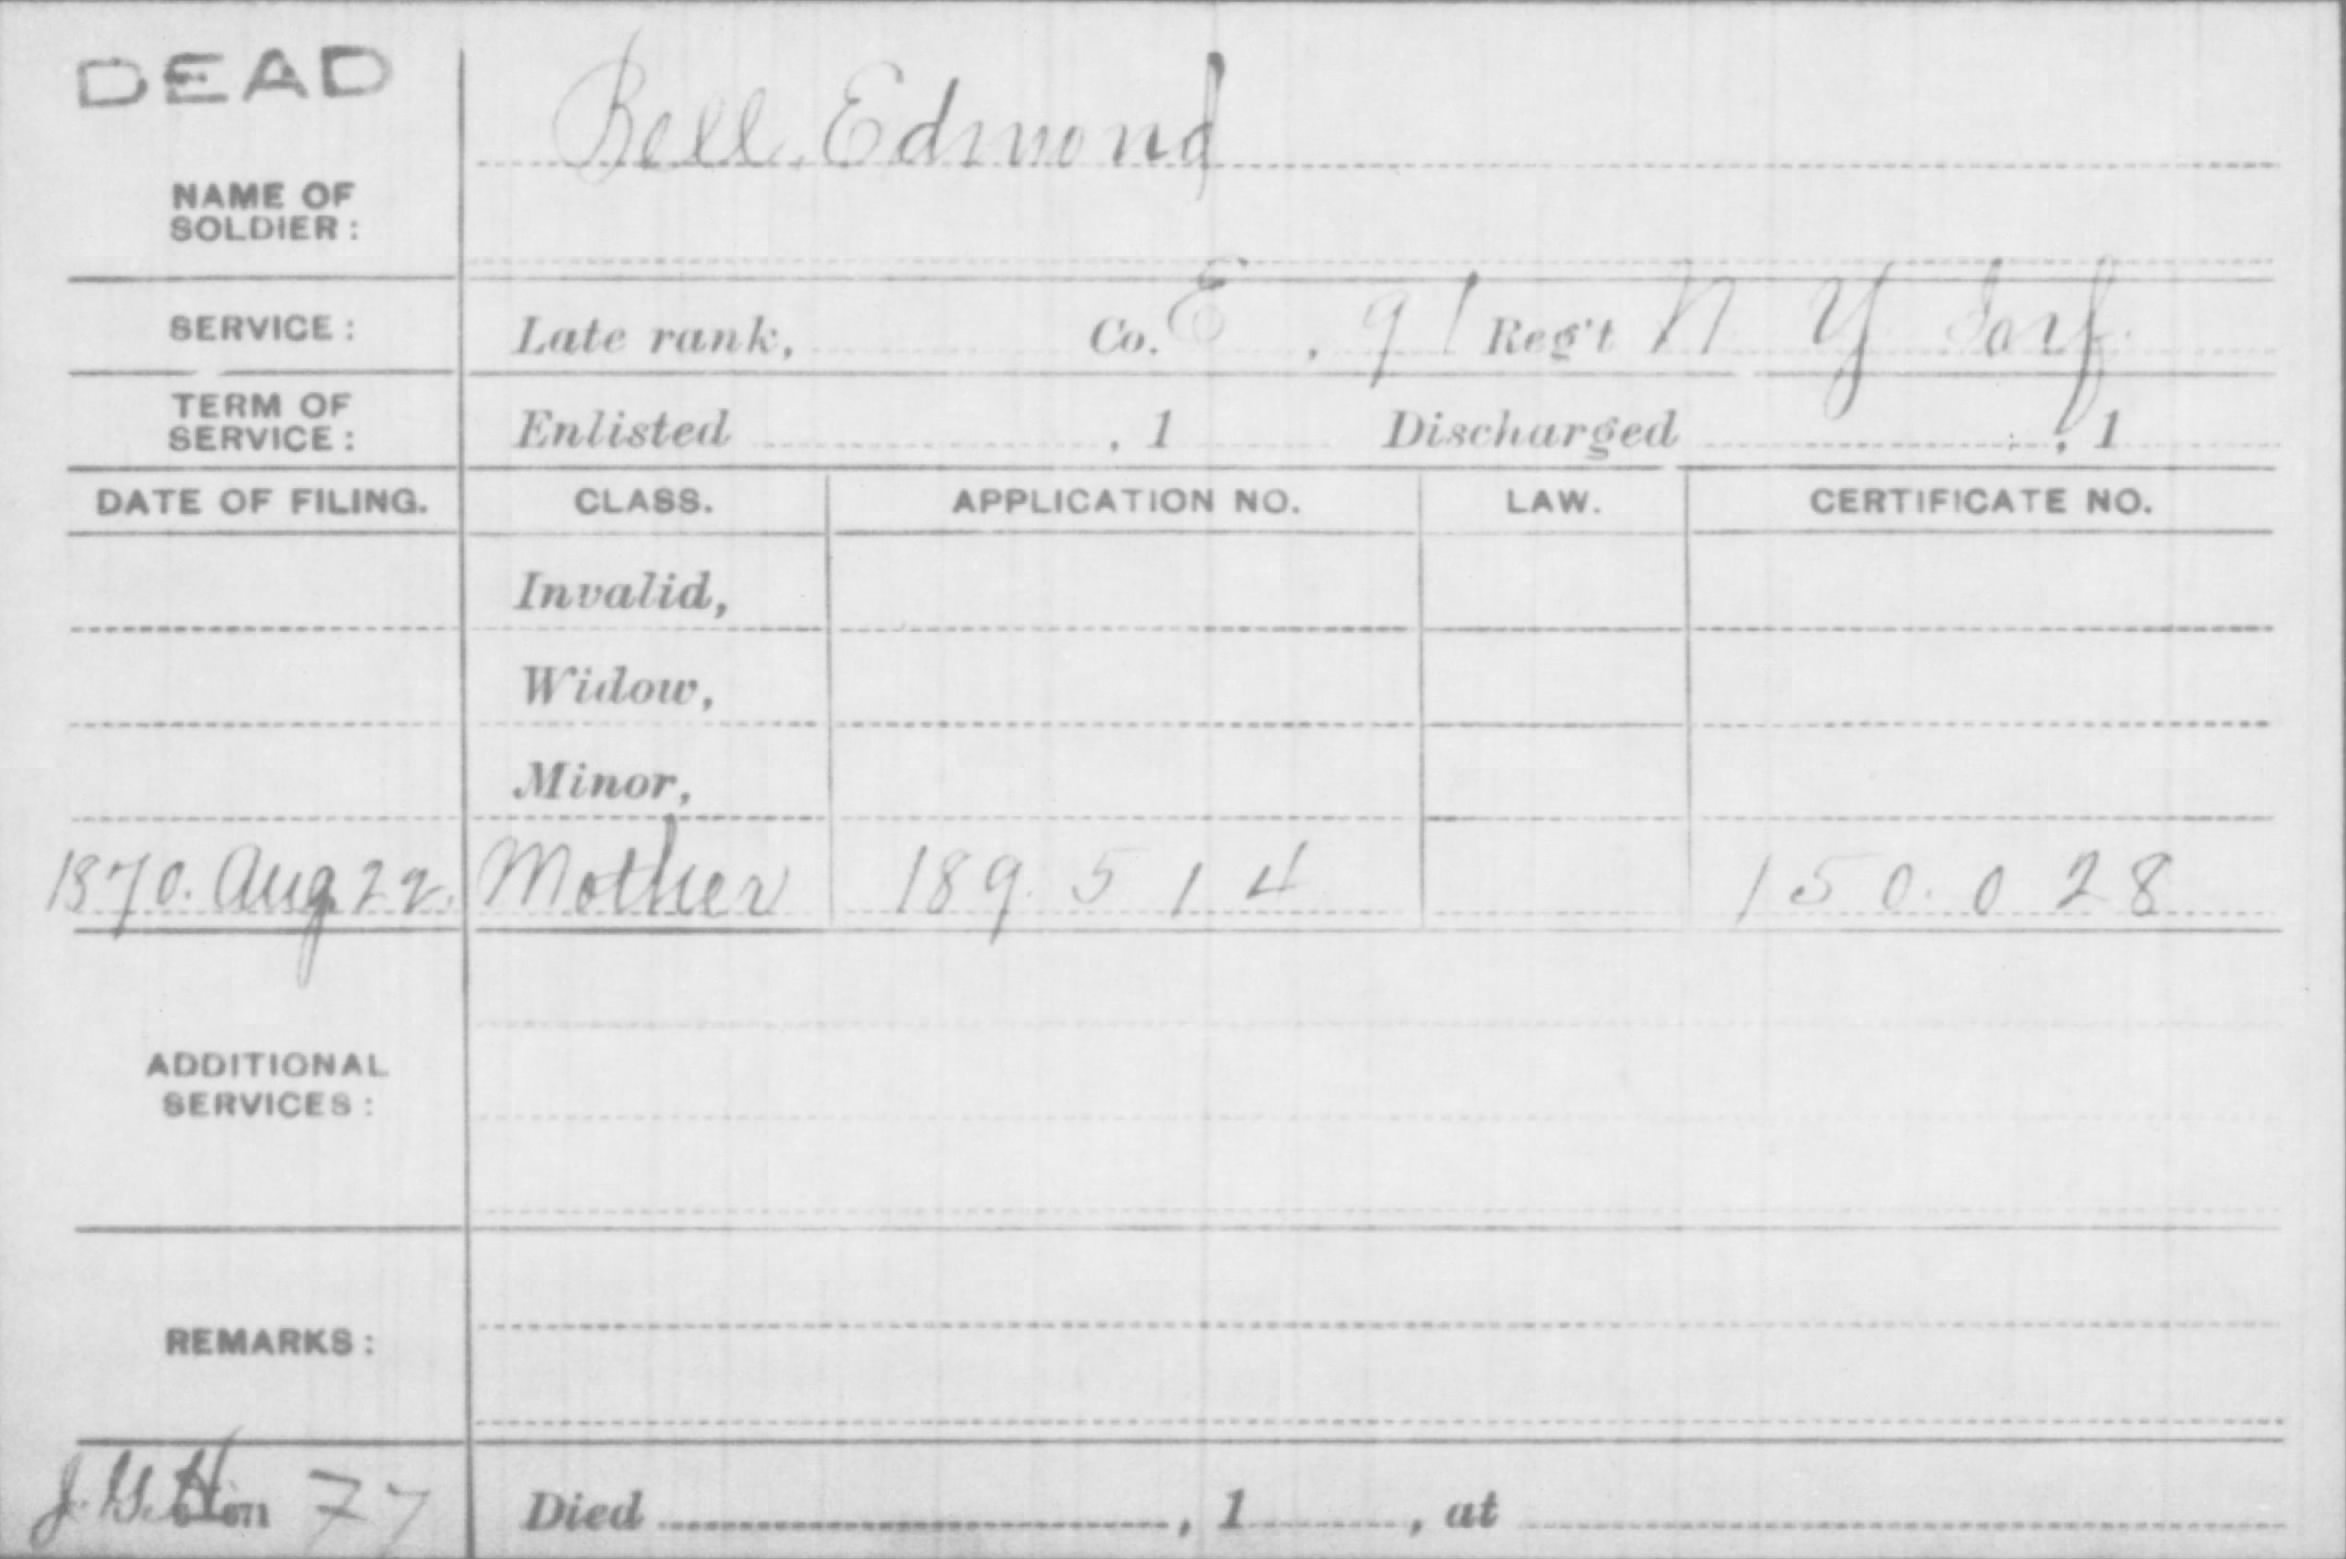 DEAD
Bell, Edmond
NAME OF
SOLDIER:
SERVICE: Late rank, Co. E, 91 Reg't N Y Inf.
TERM OF
SERVICE: Enlisted , 1 Discharged , 1
DATE OF FILING. CLASS. APPLICATION NO. LAW. CERTIFICATE NO.
Invalid,
Widow,
Minor,
1870. Aug 22. Mother 189.514 150.028
ADDITIONAL
SERVICES:
REMARKS:
J. G. H. 77 Died , 1 , at